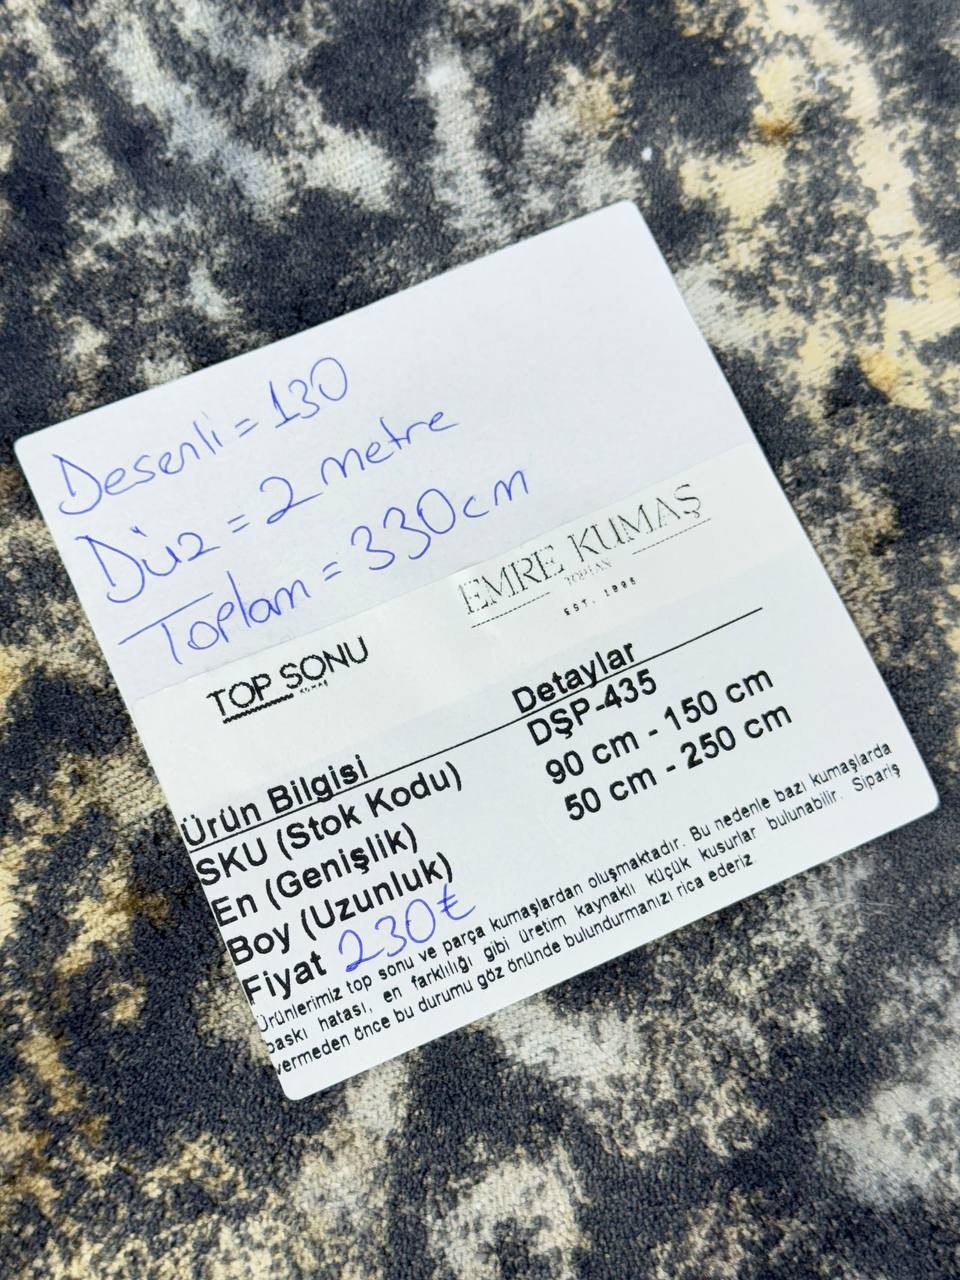 Desenli = 130
Düz = 2 metre
Toplam = 330cm
EMRE KUMAŞ
TOPTAN
EST. 1995
TOP SONU
KUMAŞ
Ürün Bilgisi Detaylar
SKU (Stok Kodu) DŞP-435
En (Genişlik) 90 cm - 150 cm
Boy (Uzunluk) 50 cm - 250 cm
Fiyat 230₺
Ürünlerimiz top sonu ve parça kumaşlardan oluşmaktadır. Bu nedenle bazı kumaşlarda
baskı hatası, en farklılığı gibi üretim kaynaklı küçük kusurlar bulunabilir. Sipariş
vermeden önce bu durumu göz önünde bulundurmanızı rica ederiz.